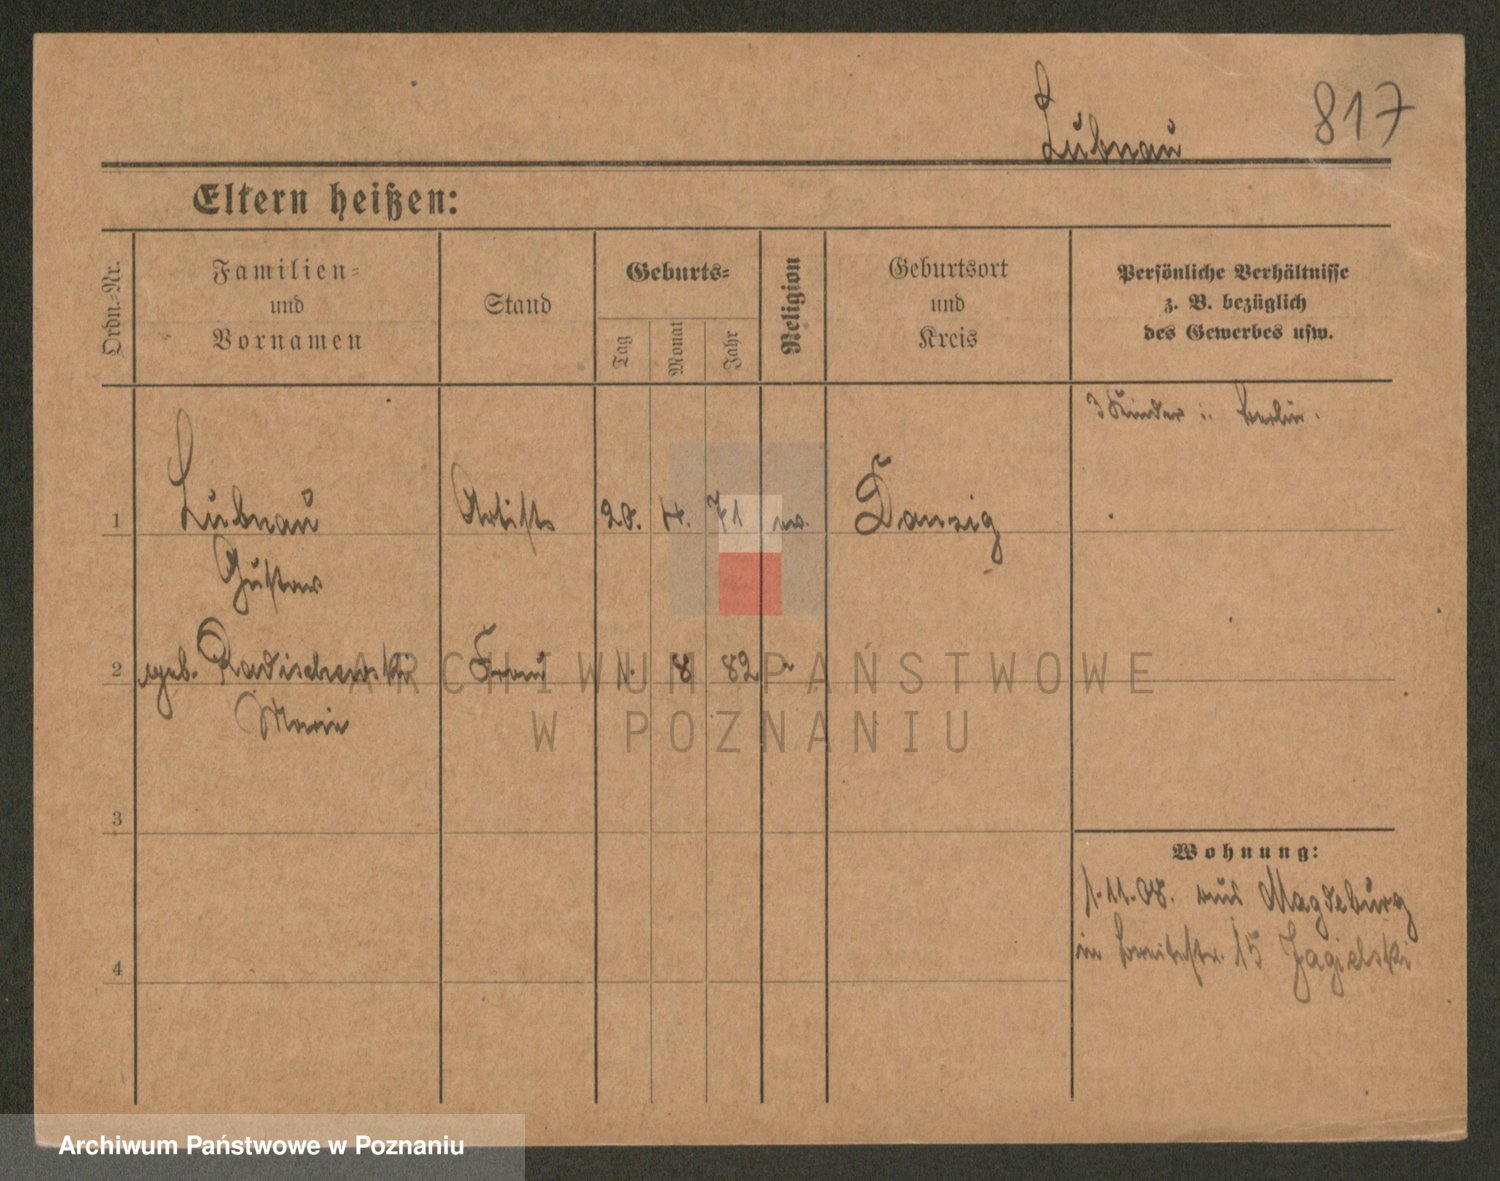 817
Lubnau
Eltern heißen:
Ordn.-Nr.
Familien-
und
Vornamen
Stand
Geburts-
Tag
Monat
Jahr
Religion
Geburtsort
und
Kreis
Persönliche Verhältnisse
z. B. bezüglich
des Gewerbes usw.
3 Kinder i. Berlin.
1 Lubnau Artist 28. 4. 71 ev. Danzig
Gustav
2 geb. Radischewski Frau 1. 8 82 "
Marie
3
Wohnung:
1.11.08. aus Magdeburg
in Breitestr. 15 Jagielski
4
ARCHIWUM PAŃSTWOWE
W POZNANIU
Archiwum Państwowe w Poznaniu